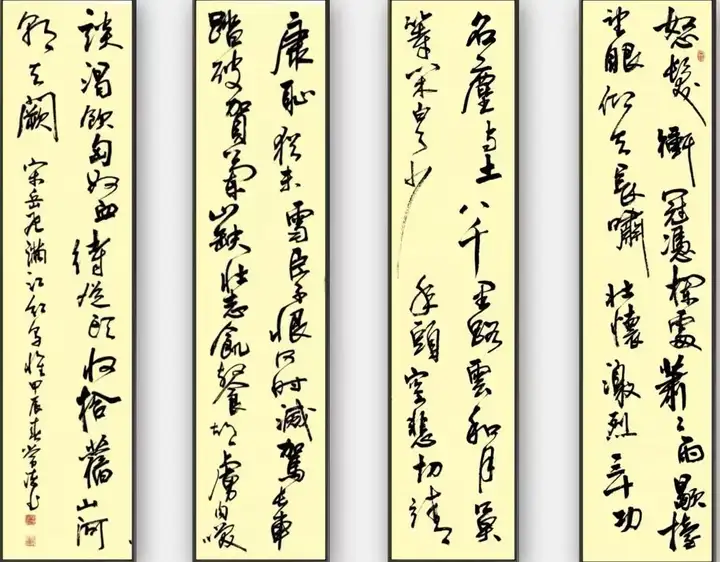 怒髮衝冠憑欄處蕭〻雨歇擡
望眼仰天長嘯壯懷激烈三十功
名塵与土八千里路雲和月莫
等閑白了少年頭空悲切靖
康恥猶未雪臣子恨何時滅駕長車
踏破賀蘭山缺壯志飢餐胡虜肉笑
談渴飲匈奴血待從頭收拾舊山河
朝天闕 宋岳飛滿江紅 甲辰春